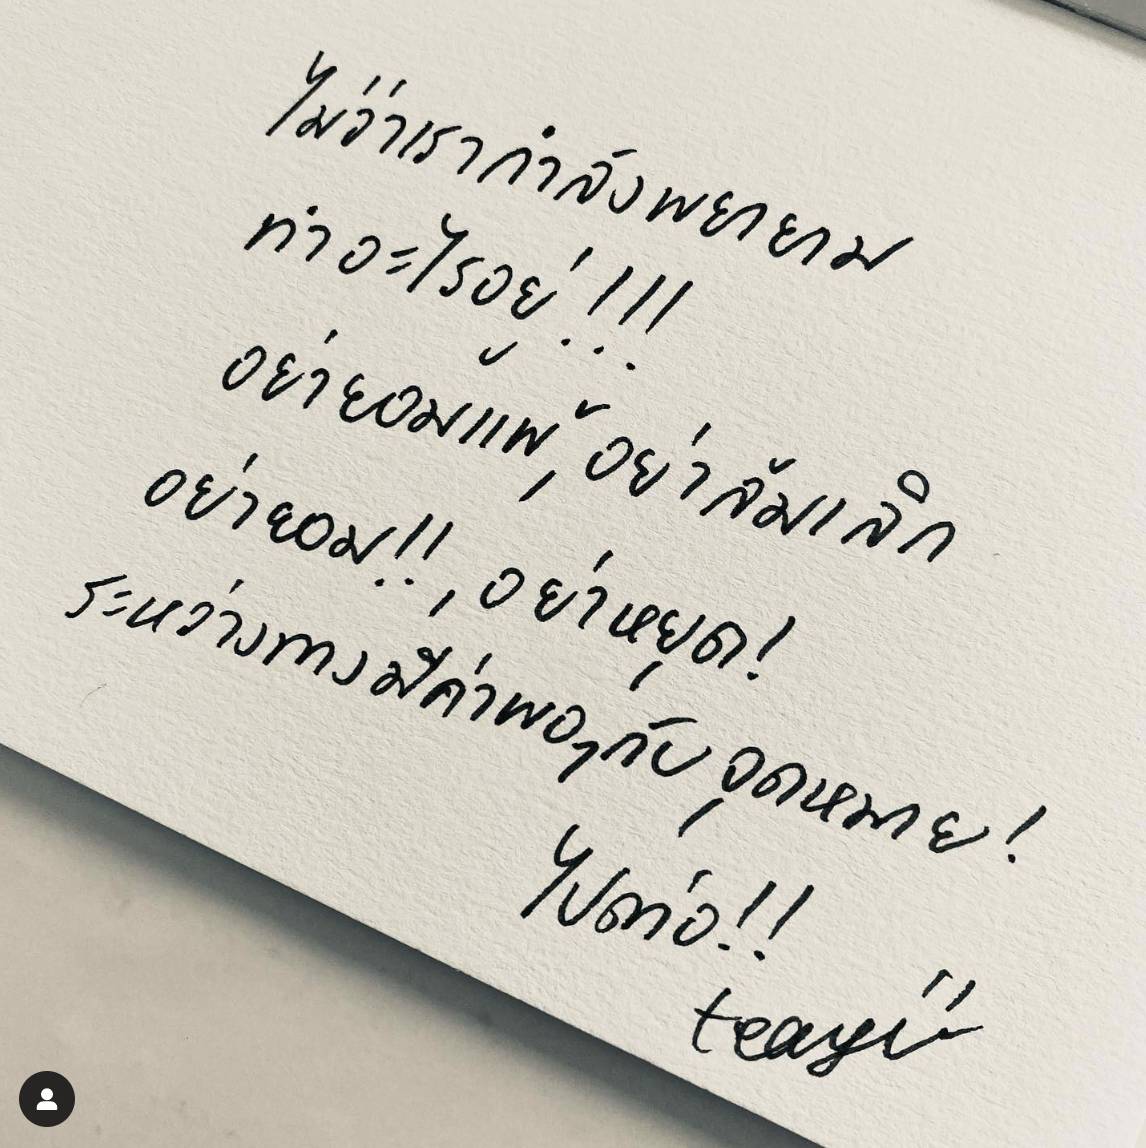 ไม่ว่าเรากำลังพยายาม
ทำอะไรอยู่!!!
อย่ายอมแพ้, อย่าล้มเลิก
อย่ายอม!!, อย่าหยุด!
ระหว่างทางมีค่าพอๆกับจุดหมาย!
ไปต่อ!!
teayii